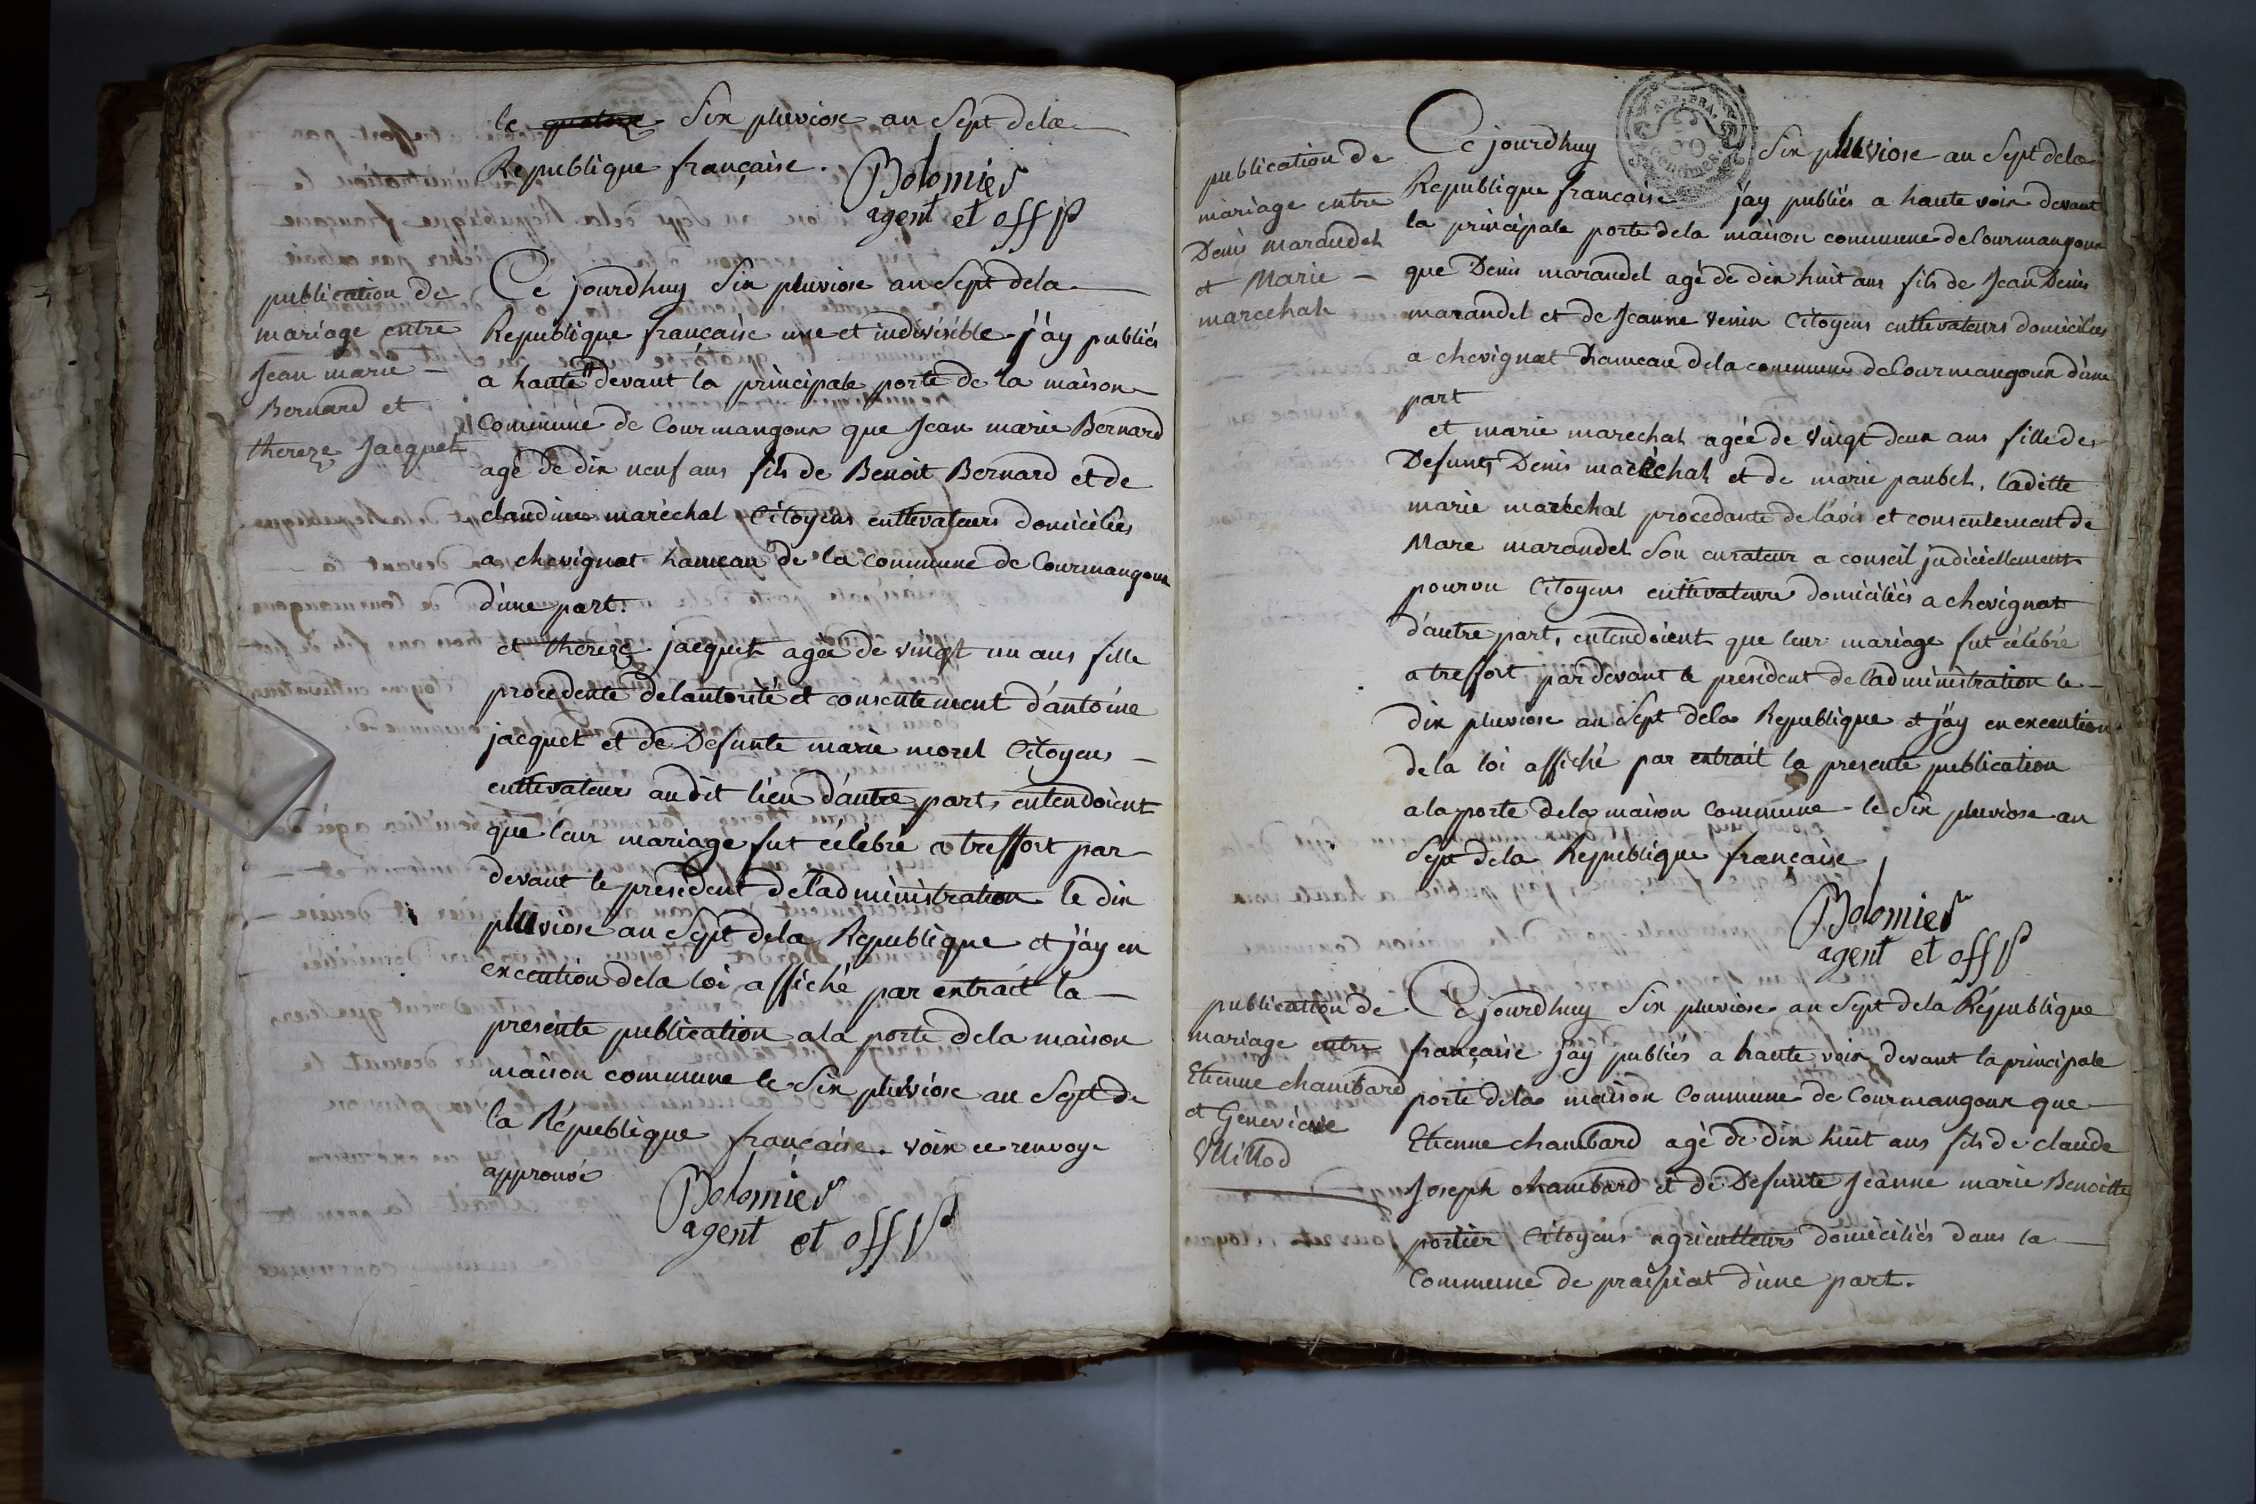 le six pluviose an Sept dela
Republique française.
Bolomier
agent et off p
publication de
mariage entre
Jean marie
Bernard et
thereze Jacquet
Ce jourdhuy Six pluviose an Sept dela
Republique française une et indivisible j'ay publiés
a haute devant la principale porte de la maison
Commune de Courmangoux que Jean marie Bernard
agé de dix neuf ans fils de Benoit Bernard et de
claudine maréchal Citoyens cultivateurs domiciliés
a chevignat hameau de la commune de Courmangoux
d'une part.
et thereze jacquet agée de vingt un ans fille
procedente delautorité et consentement d'antoine
jacquet et de Defunte marie morel Citoyens
cultivateurs audit lieu d'autre part, entendoient
que leur mariage fut célébré a treffort par
devant le président de l'administration le dix
pluviose an Sept dela Republique et j'ay en
execution dela loi affiché par extrait la
presente publication ala porte dela maison
maison commune le Six pluviose an Sept de
la République française. voix ce renvoy
approuvé
Bolomier
agent et off p
publication de
mariage entre
Denis marandel
et Marie
marechal
Ce jourdhuy Six pluviose an Sept dela
Republique française j'ay publiés a haute voix devant
la principale porte dela maison commune de Courmangoux
que Denis marandel agé de dix huit ans fils de Jean Denis
marandel et de Jeanne venin Citoyens cultivateurs domiciliés
a chevignat hameau dela commune de Courmangoux d'une
part
et marie marechal agée de vingt deux ans fille des
Defunts Denis maréchal et de marie , laditte
marie maréchal procedante de l'avis et consentement de
Marc marandel Son curateur a conseil judiciellement
pourvu Citoyens cultivateurs domiciliés a chevignat
d'autre part, entendoient que leur mariage fut célébré
a treffort pardevant le president de l'administration le
dix pluviose an Sept dela Republique et j'ay en execution
de la loi affiché par extrait la presente publication
a la porte dela maison Commune le Six pluviose an
Sept dela Republique française
Bolomier
agent et off p
publication de
mariage entre
Etienne chambard
et Genevieve
Vuillod
Ce jourdhuy Six pluviose an Sept dela République
française j'ay publiés a haute voix devant la principale
porte dela maison Commune de Courmangoux que
Etienne chambard agé de dix huit ans fils de claude
Joseph chambard et de Defunte Jéanne marie Benoitte
portier Citoyens agriculteurs domiciliés dans la
Commune de prassiat d'une part.